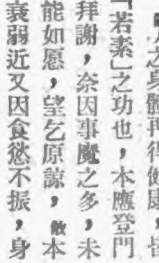 之身體再得健康，皆
「若素」之功也，本應登門
拜謝，奈因事魔之多，未
能如愿，望乞原諒，敝本
衰弱近又因食慾不振，身